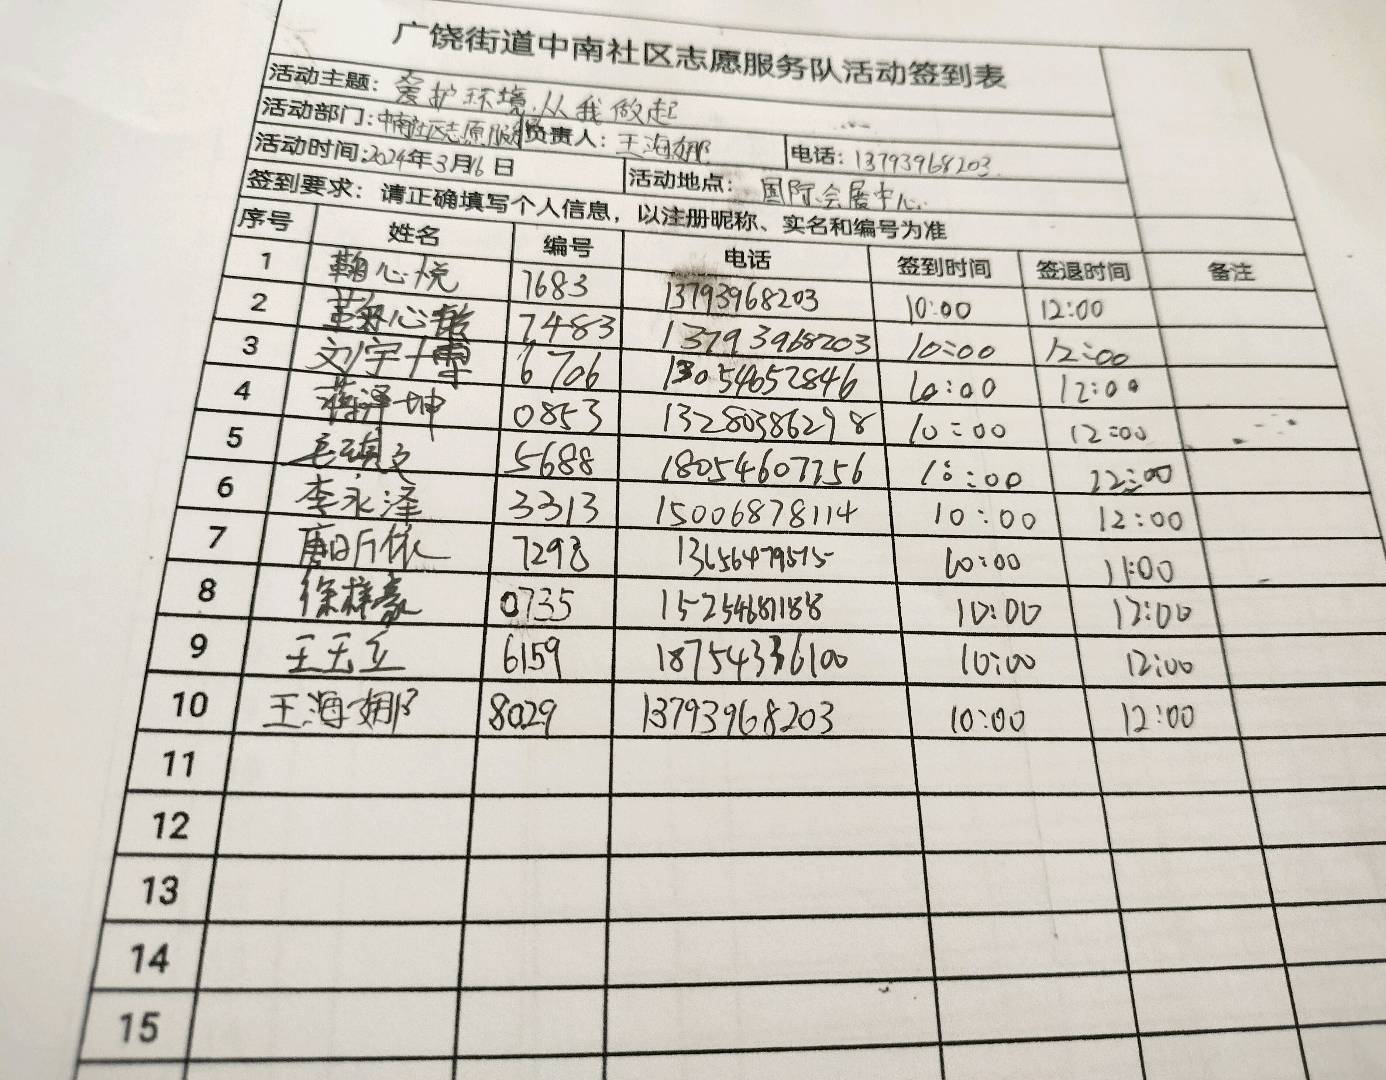 广饶街道中南社区志愿服务队活动签到表
活动主题：爱护环境，从我做起
活动部门：中南社区志愿服务 负责人：王海娜 电话：13793968203
活动时间：2024年3月16日 活动地点：国际会展中心
签到要求：请正确填写个人信息，以注册昵称、实名和编号为准
序号 姓名 编号 电话 签到时间 签退时间 备注
1 鞠心悦 7683 13793968203 10:00 12:00
2 7483 13793968203 10:00 12:00
3 刘宇博 6706 13054652846 10:00 12:00
4 蒋泽坤 0853 13280386298 10:00 12:00
5 5688 18054607756 10:00 12:00
6 李永泽 3313 15006878114 10:00 12:00
7 7298 13656479575 10:00 11:00
8 徐梓豪 0735 15254681188 10:00 12:00
9 王玉立 6159 18754336100 10:00 12:00
10 王海娜 8029 13793968203 10:00 12:00
11
12
13
14
15